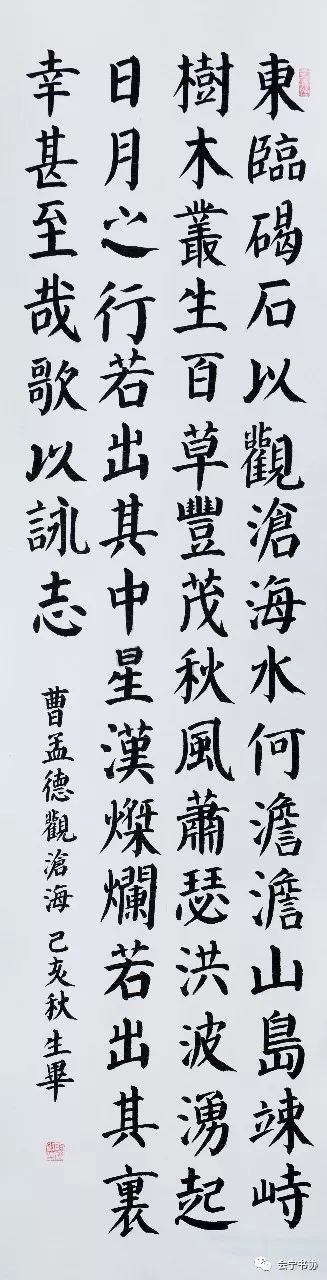 東臨碣石以觀滄海水何澹澹山島竦峙
樹木叢生百草豐茂秋風蕭瑟洪波湧起
日月之行若出其中星漢燦爛若出其裏
幸甚至哉歌以詠志
曹孟德觀滄海 己亥秋生畢
会宁书协